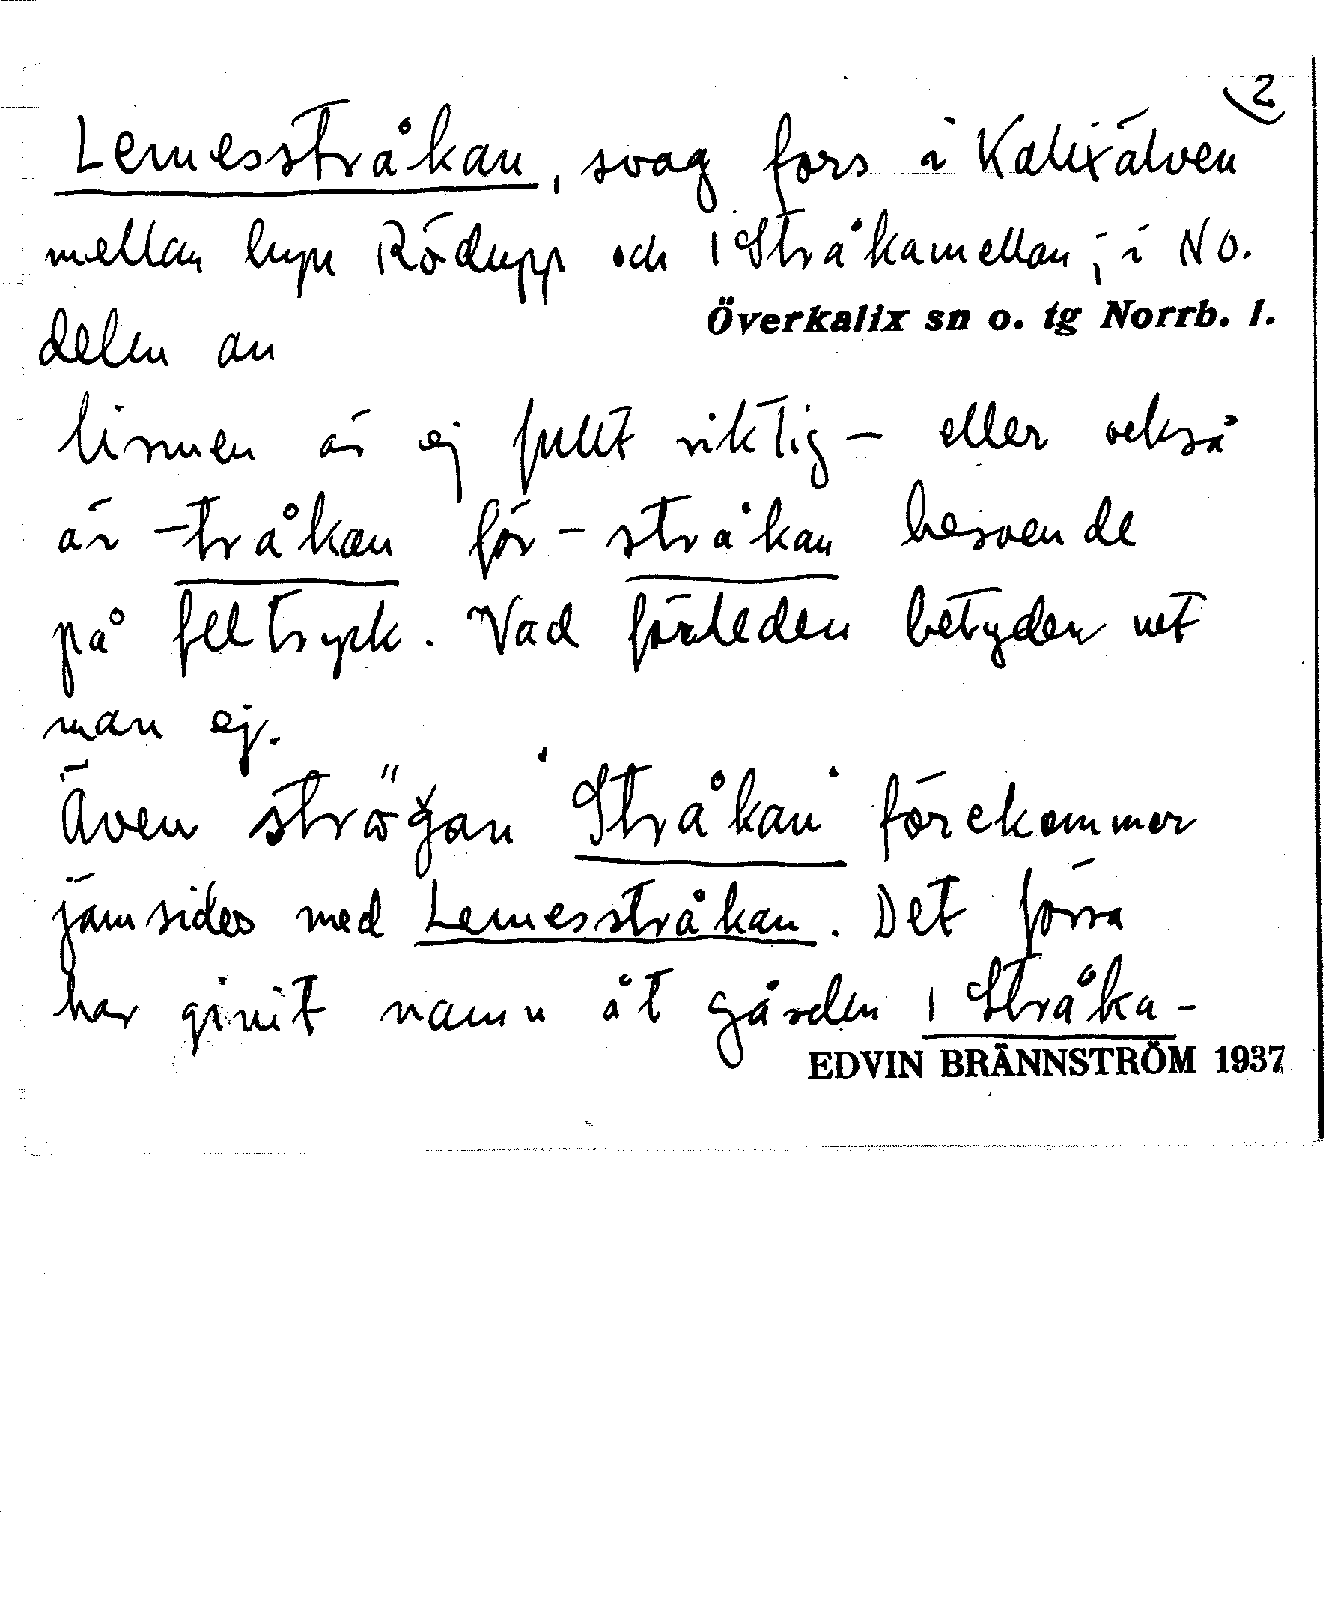 2
Lemesstråkan, svag fors i Kalixälven
mellan byn Rödupp och 1 Stråkamellan; i NO.
Överkalix sn o. tg Norrb. l.
delen av
linnen är ej fullt riktig – eller också
är -tråkan för -stråkan beroende
på feltryck. Vad förleden betyder vet
man ej.
Även strőgan "Stråkan" förekommer
jämsides med Lemesstråkan. Det förra
har givit namn åt gården 1 Stråka-
EDVIN BRÄNNSTRÖM 1937